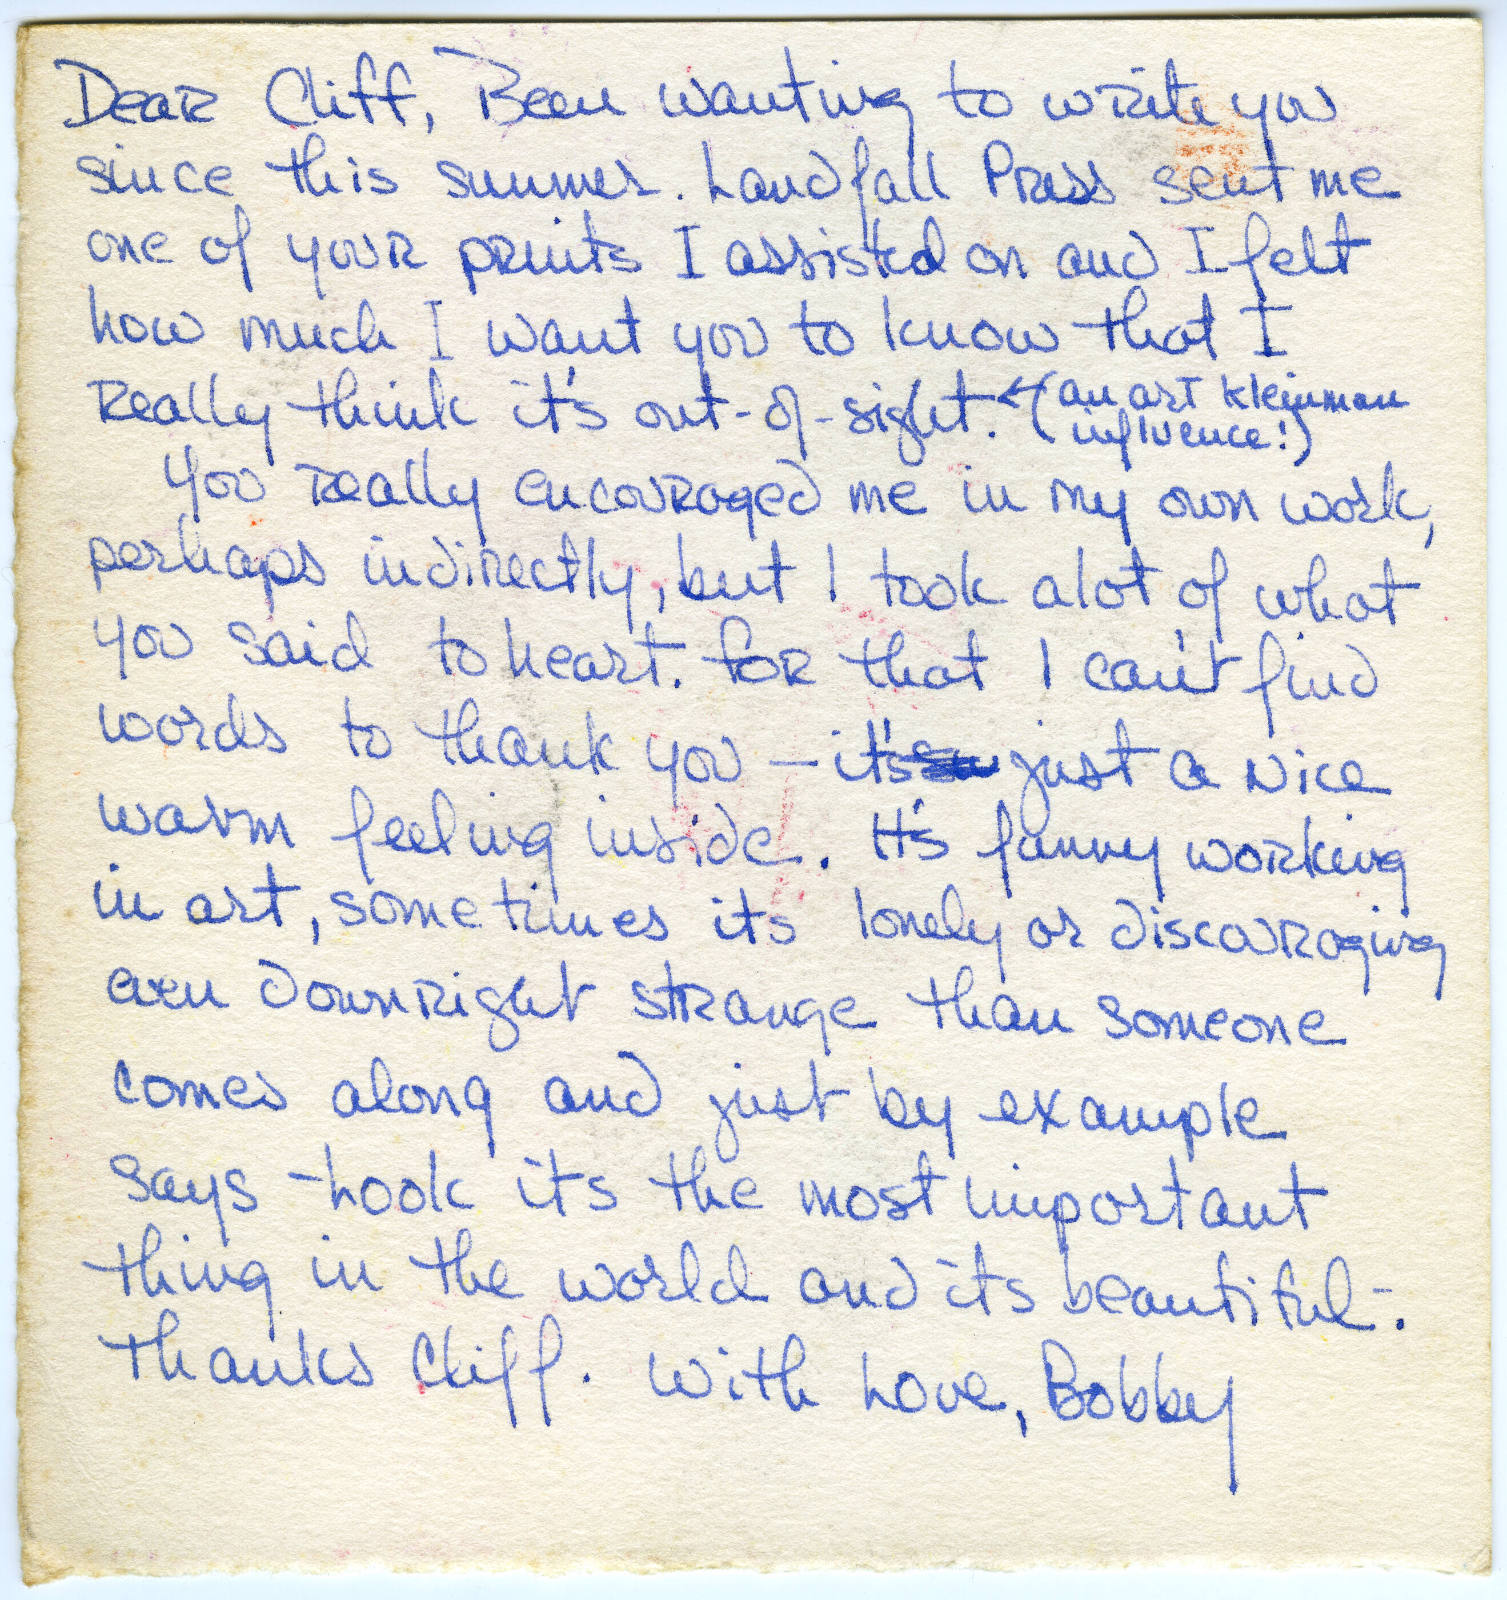 Dear Cliff, Been wanting to write you
since this summer. Landfall Press sent me
one of your prints I assisted on and I felt
how much I want you to know that I
Really think it's out-of-sight. ← (an art Kleinman
influence!)
You Really encouraged me in my own work,
perhaps indirectly, but I took alot of what
you said to heart. For that I can't find
words to thank you — it's just a nice
warm feeling inside. It's funny working
in art, sometimes its lonely or discouraging
even downright strange than someone
comes along and just by example
says - Look its the most important
thing in the world and its beautiful-.
Thanks Cliff. With Love, Bobby